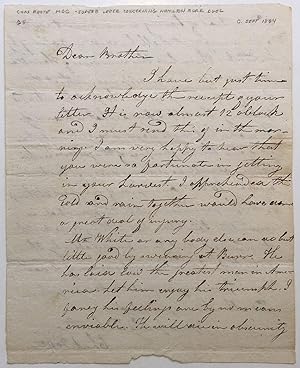 Dear Brother
I have but just time
to acknowledge the receipt of your
letter. It is now almost 12 oclock
and I must send this off in the mor-
ning. I am very happy to hear that
you were so fortunate in getting
in your harvest. I apprehended the
Cold and rain together would have done
a great deal of injury.
Mr White or any body else can do but
little good by swearing at Burr. He
has laid low the greatest man in Ame-
rica. Let him enjoy his triumph. I
fancy his feelings are by no means
enviable. He will die in obscurity